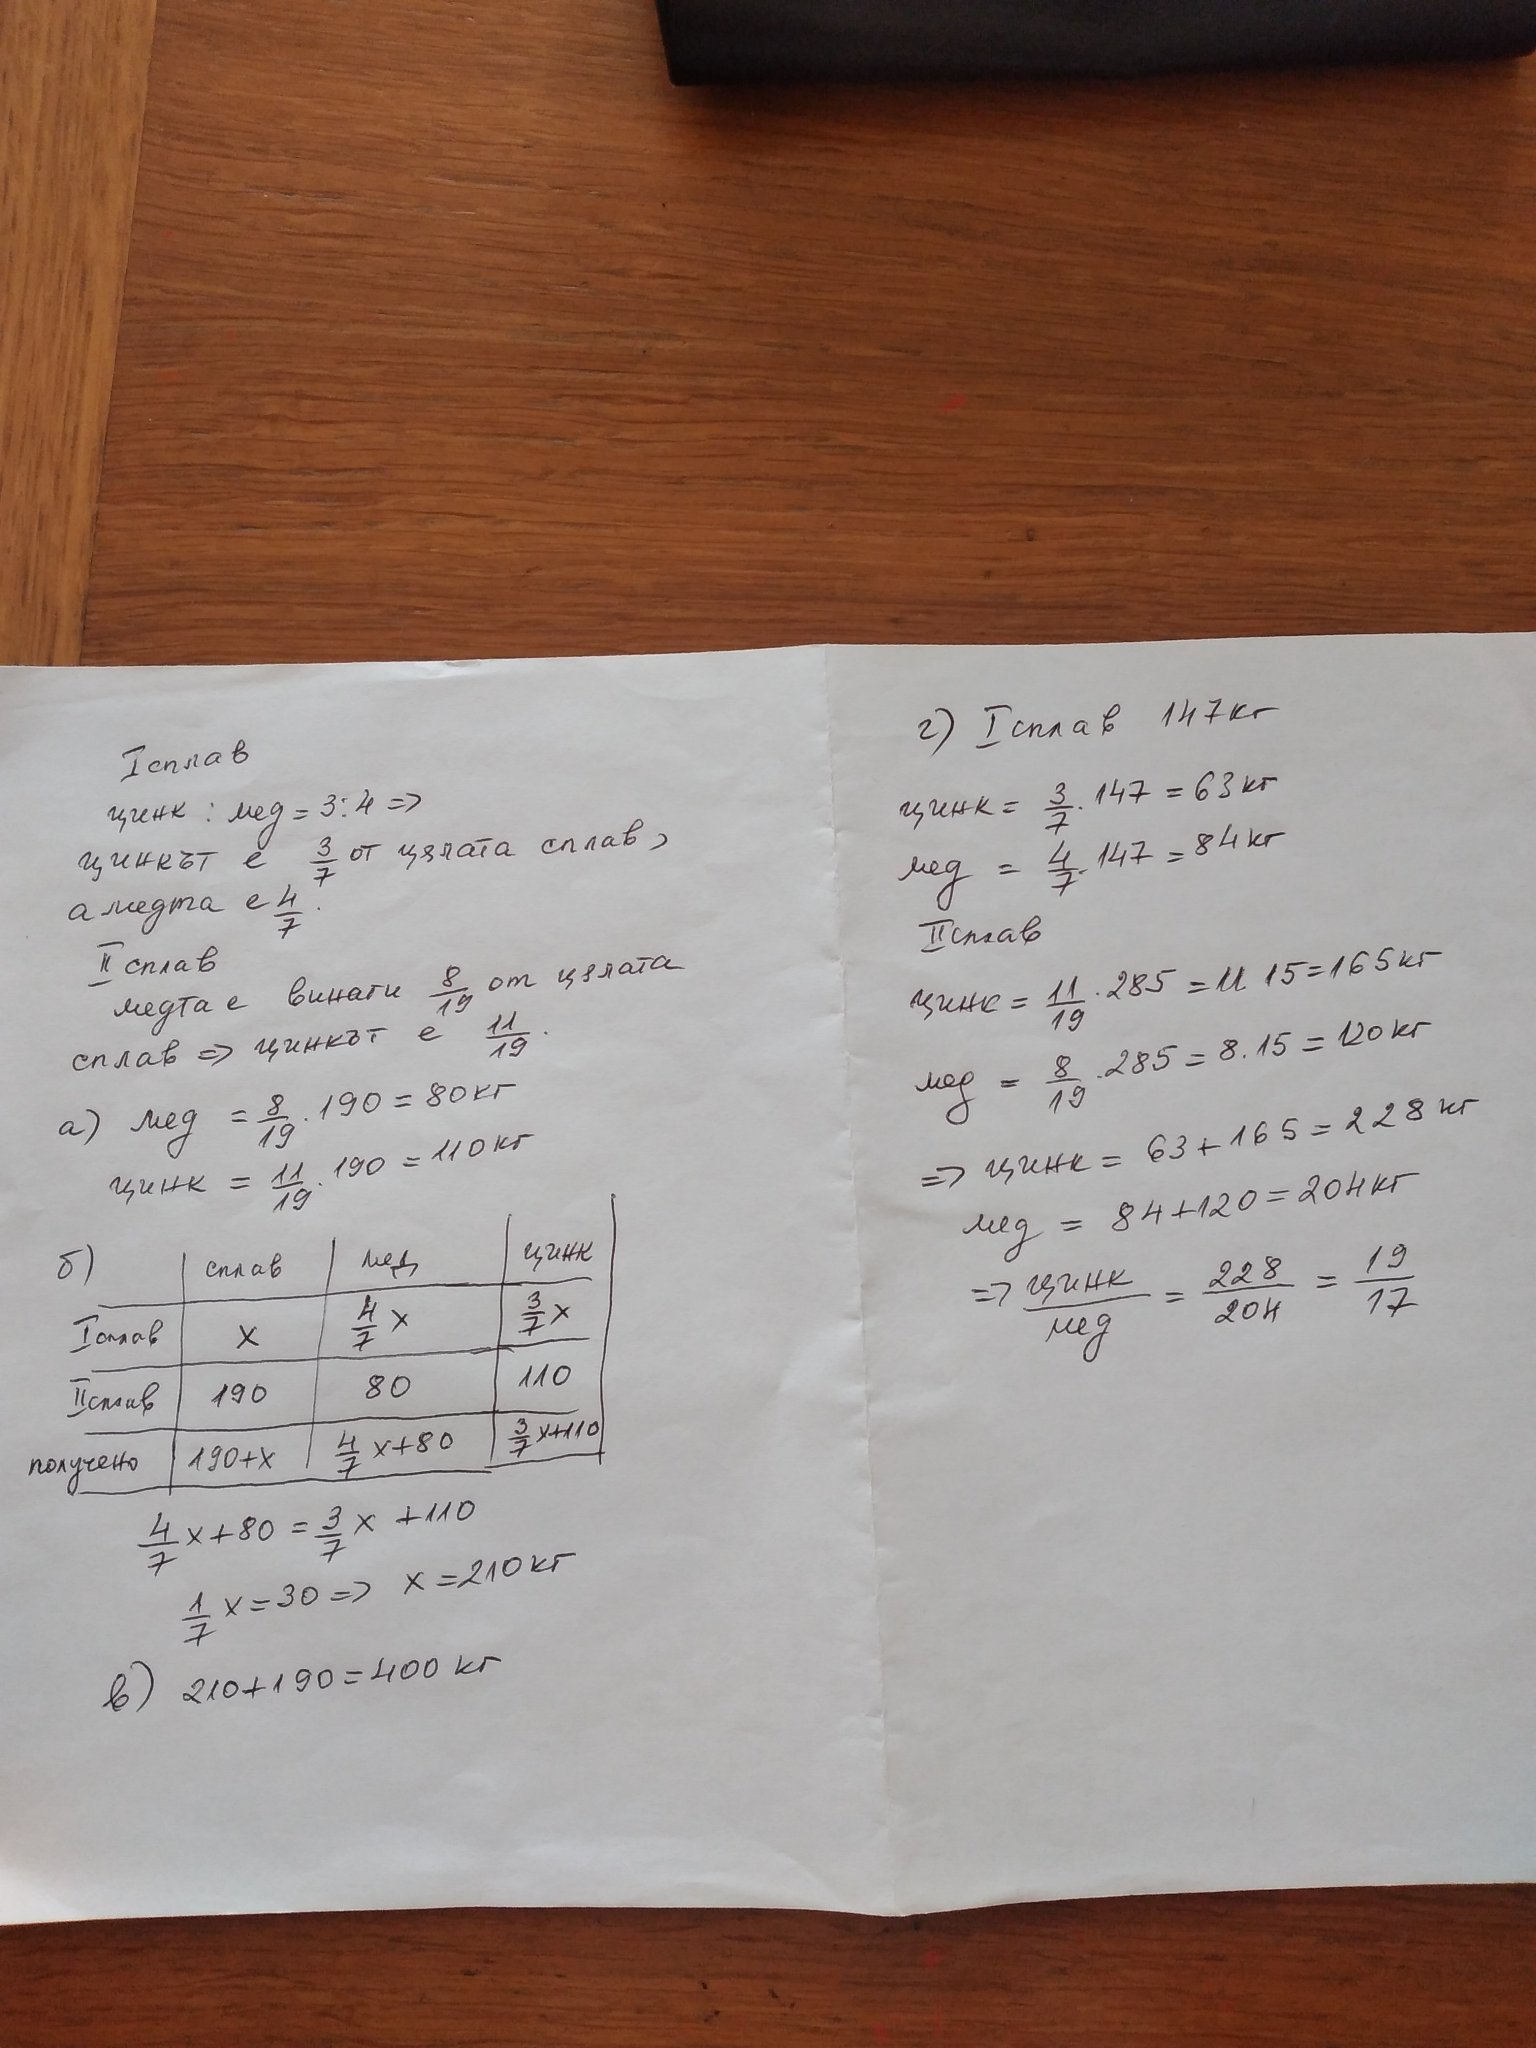 I сплав
цинк : мед = 3:4 =>
цинкът е 3/7 от цялата сплав,
а медта е 4/7.
II сплав
медта е винаги 8/19 от цялата
сплав => цинкът е 11/19.
а) мед = 8/19 . 190 = 80 кг
цинк = 11/19 . 190 = 110 кг
б) | сплав | мед | цинк
I сплав | x | 4/7 x | 3/7 x
II сплав | 190 | 80 | 110
получено | 190+x | 4/7 x+80 | 3/7 x+110
4/7 x+80 = 3/7 x +110
1/7 x = 30 => x = 210 кг
в) 210+190 = 400 кг
г) I сплав 147 кг
цинк = 3/7 . 147 = 63 кг
мед = 4/7 . 147 = 84 кг
II сплав
цинк = 11/19 . 285 = 11 15 = 165 кг
мед = 8/19 . 285 = 8.15 = 120 кг
=> цинк = 63+165 = 228 кг
мед = 84+120 = 204 кг
=> цинк/мед = 228/204 = 19/17